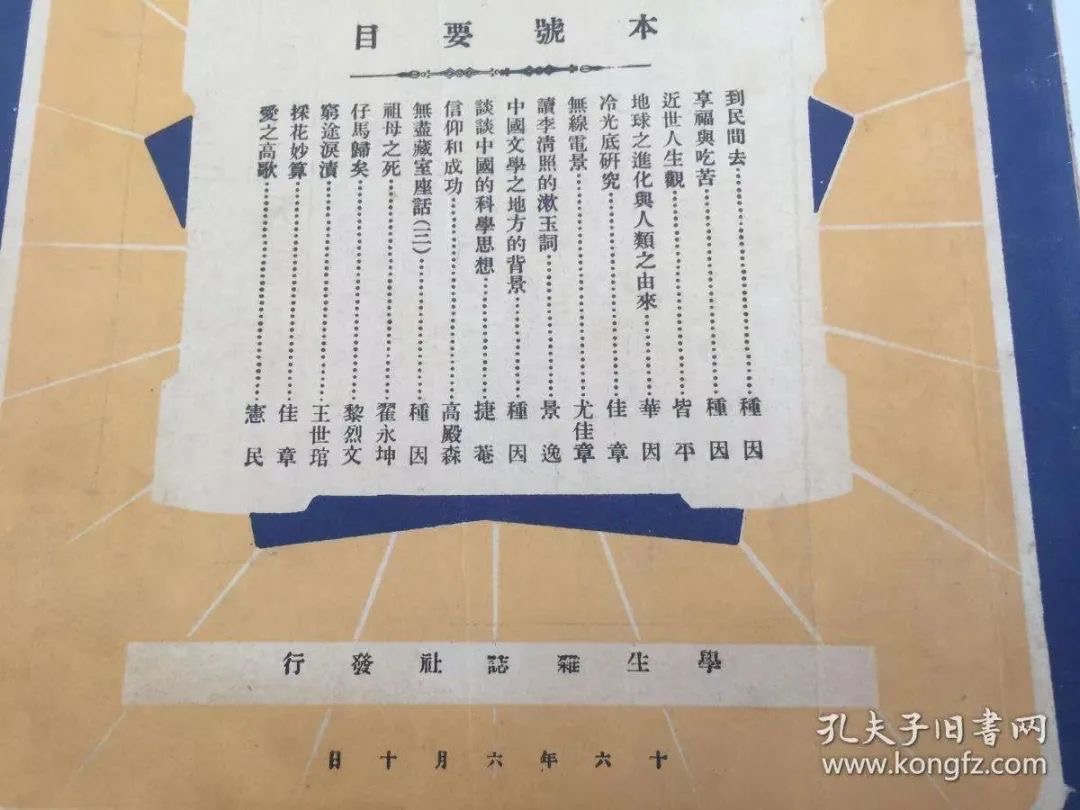 本號要目
到民間去⋯⋯種因
享福與吃苦⋯⋯種因
近世人生觀⋯⋯皆平
地球之進化與人類之由來⋯⋯華因
冷光底研究⋯⋯佳章
無線電景⋯⋯尤佳章
讀李清照的漱玉詞⋯⋯景逸
中國文學之地方的背景⋯⋯種因
談談中國的科學思想⋯⋯捷菴
信仰和成功⋯⋯高殿森
無盡藏室座話(三)⋯⋯種因
祖母之死⋯⋯翟永坤
仔馬歸矣⋯⋯黎烈文
窮途淚漬⋯⋯王世琯
採花妙算⋯⋯佳章
愛之高歌⋯⋯憲民
學生雜誌社發行
十六年六月十日
孔夫子旧书网
www.kongfz.com